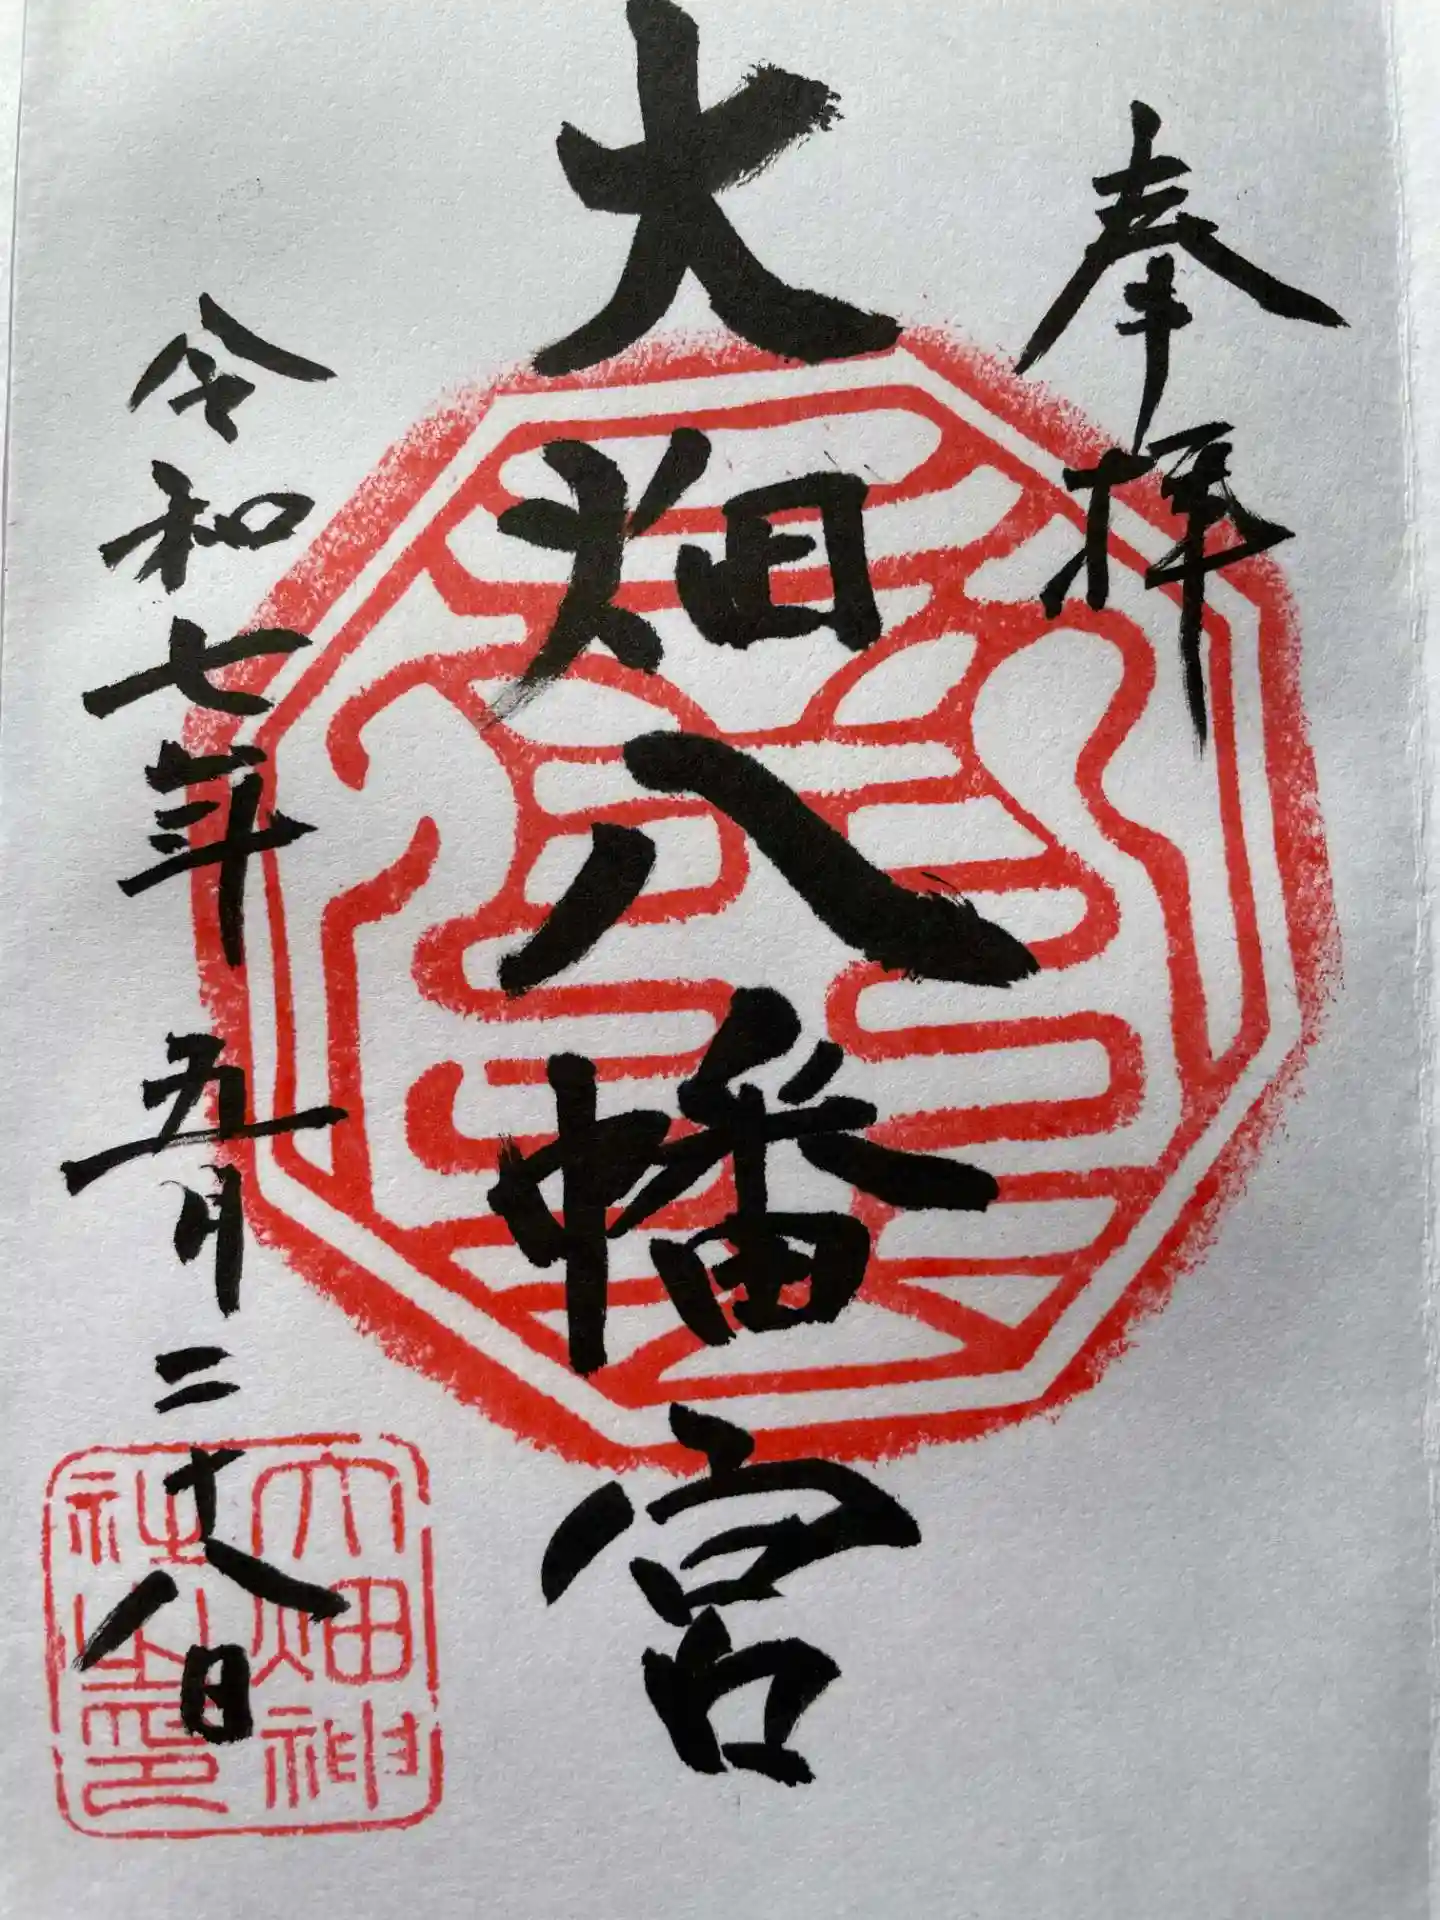 奉拝
大畑八幡宮
令和七年五月二十八日
大畑神
社